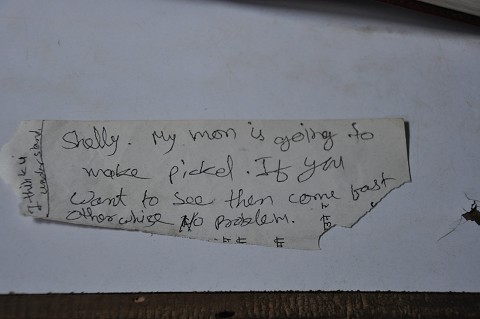 Shelly. My mom is going to
make pickel. If you
want to see then come fast
otherwhize No problem.
I think u
understand